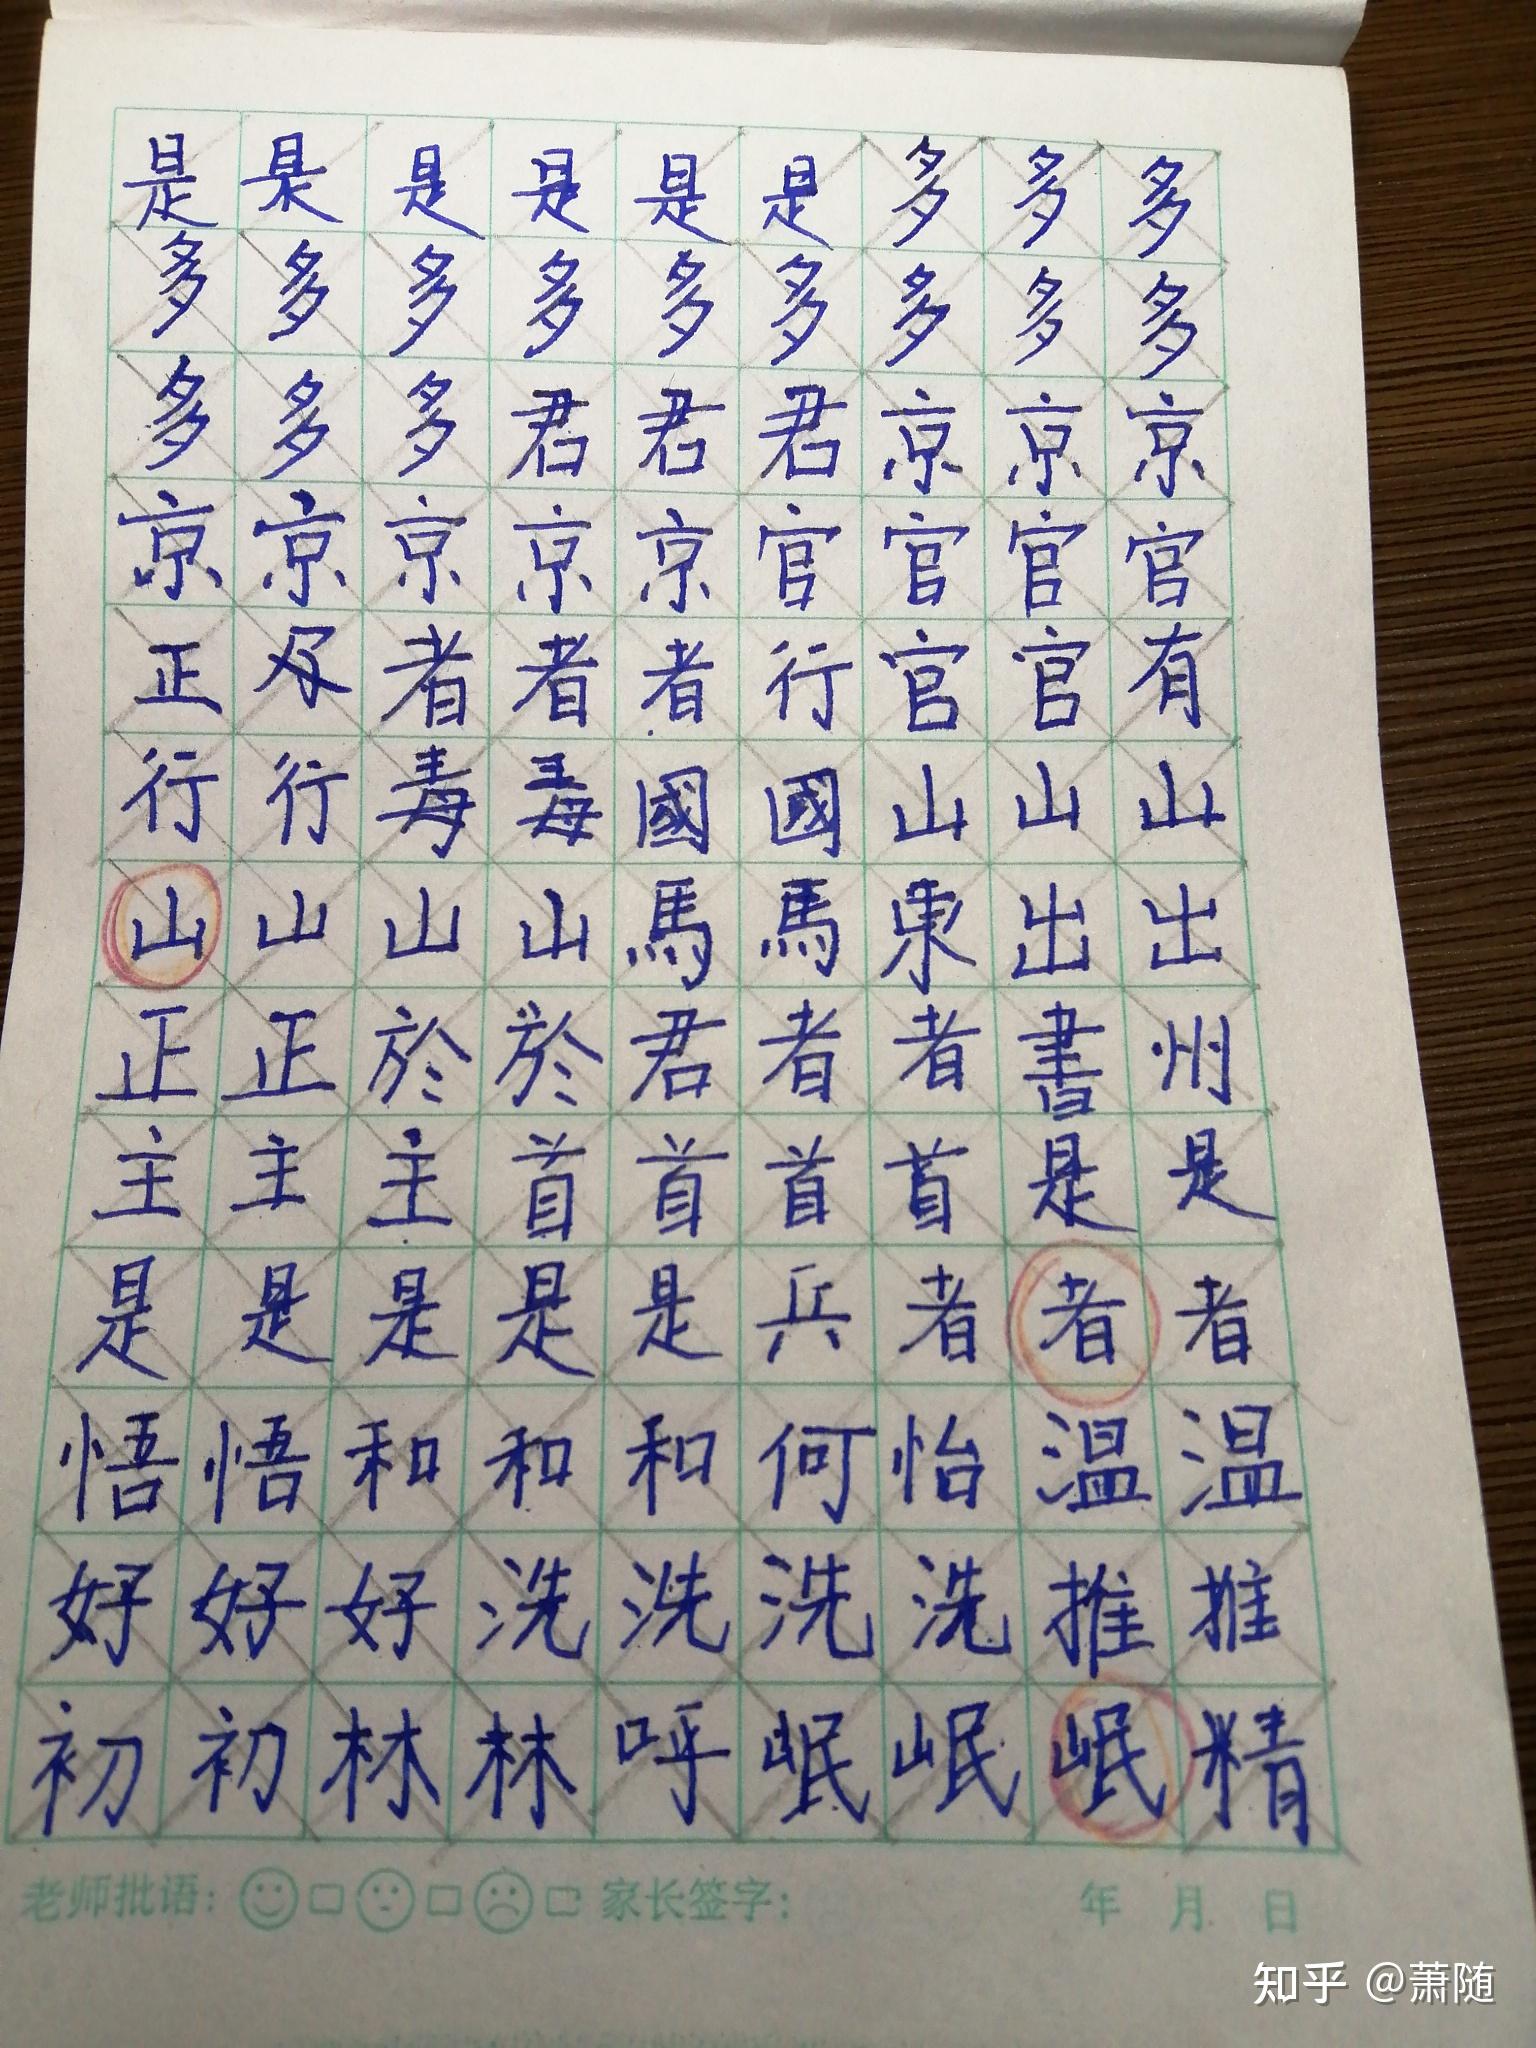 是是是是是是多多多
多多多多多多多多多
多多多君君君京京京
京京京京京官官官官
正及者者者行官官有
行行毒毒國國山山山
山山山山馬馬東出出
正正於於君者者書州
主主主首首首首是是
是是是是是兵者者者
悟悟和和和何怡温温
好好好洗洗洗洗推推
初初林林呼岷岷岷精
老师批语： 家长签字： 年 月 日
知乎 @萧随